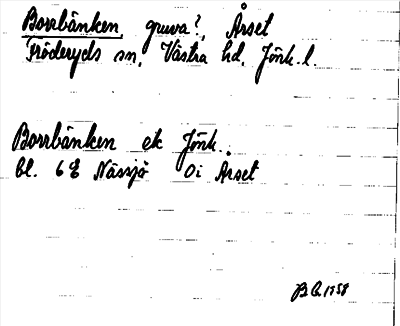 Borrbänken, gruva?, Årset
Fröderyds sn, Västra hd, Jönk. l.
Borrbänken ek Jönk.
bl. 6g Nässjö 0i Årset
B.G. 1958